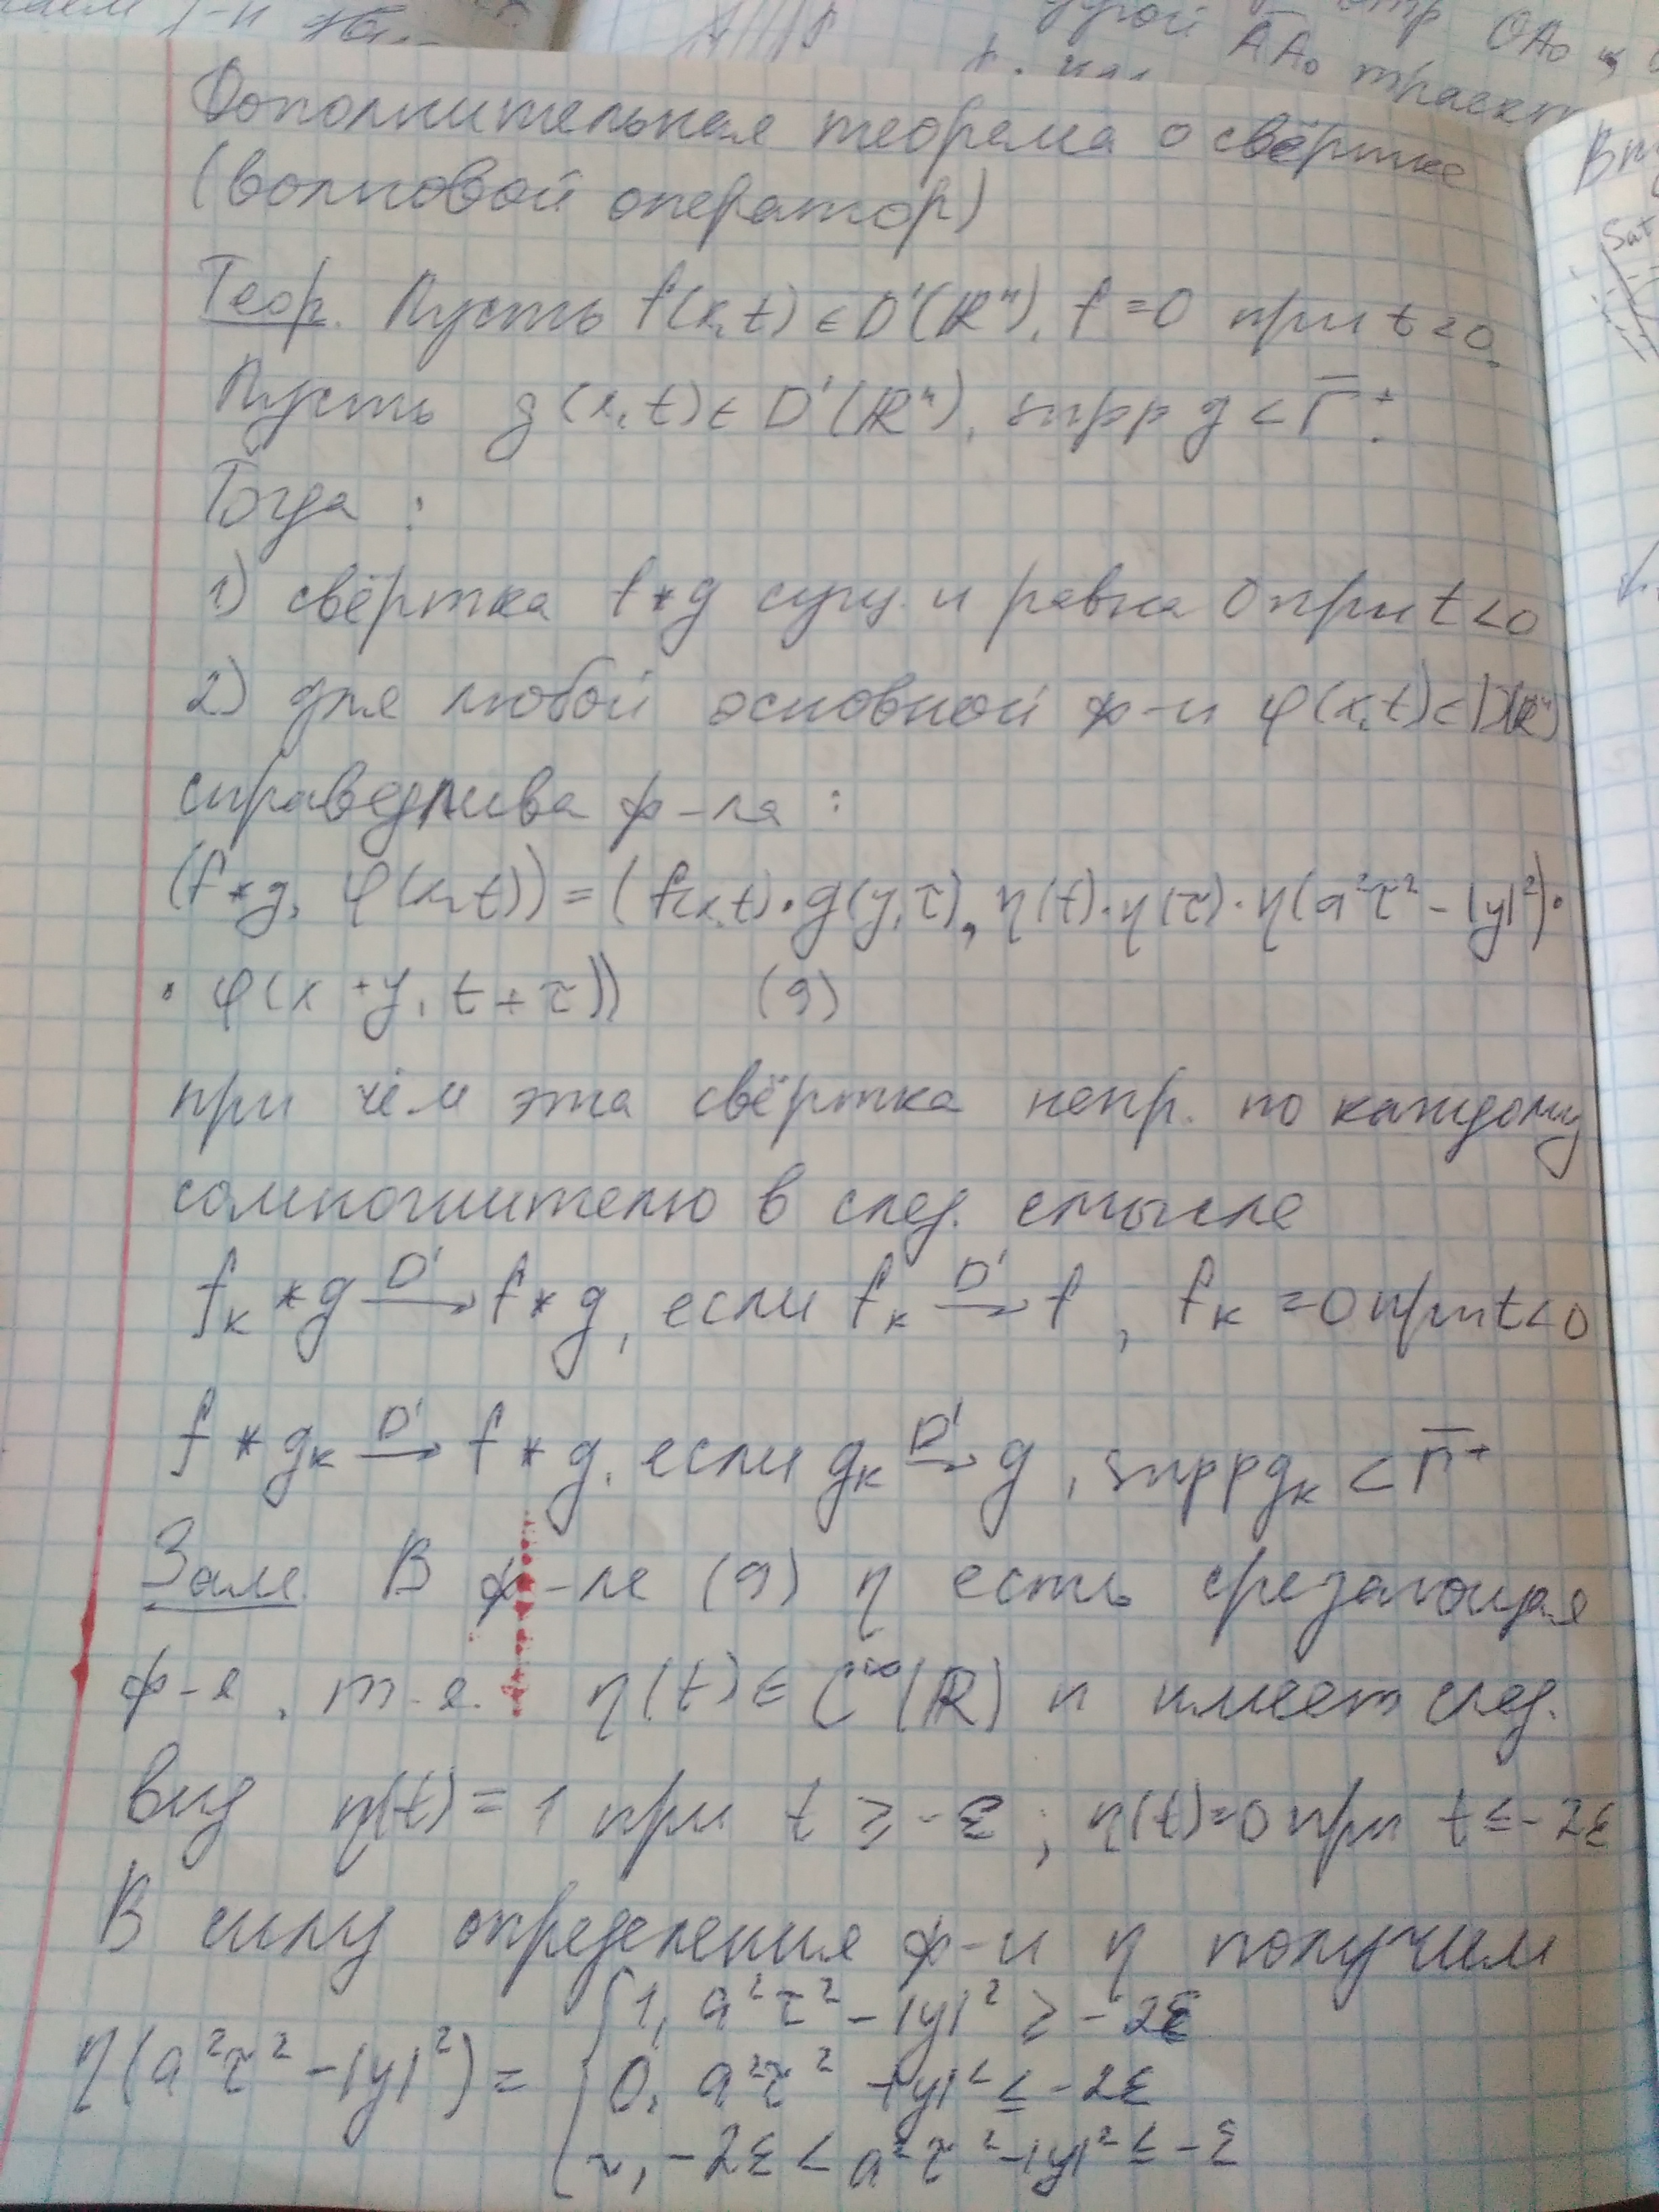 Дополнительная теорема о свёртке
(волновой оператор)
Теор. Пусть f(x,t) ∈ D'(ℝⁿ), f = 0 при t < 0.
Пусть g(x,t) ∈ D'(ℝⁿ), supp g ⊂ Γ̄⁺.
Тогда :
1) свёртка f * g сущ. и равна 0 при t < 0
2) для любой основной ф-и φ(x,t) ∈ D(ℝⁿ)
справедлива ф-ла :
(f * g, φ(x,t)) = (f(x,t) · g(y,τ), η(t) · η(τ) · η(a²τ² - |y|²) ·
· φ(x + y, t + τ)) (9)
при чём эта свёртка непр. по каждому
сомножителю в след. смысле
fₖ * g →^{D'} f * g, если fₖ →^{D'} f, fₖ = 0 при t < 0
f * gₖ →^{D'} f * g, если gₖ →^{D'} g, supp gₖ ⊂ Γ̄⁺
Зам. В ф-ле (9) η есть срезающая
ф-я, т.е. η(t) ∈ C^∞(ℝ) и имеет след.
вид η(t) = 1 при t ≥ -ε ; η(t) = 0 при t ≤ -2ε
В силу определения ф-и η получим
{1, a²τ² - |y|² ≥ -2ε
η(a²τ² - |y|²) = {0, a²τ² - |y|² ≤ -2ε
{~, -2ε < a²τ² - |y|² ≤ -ε
другой
AA₀
OA₀
траект
Sat